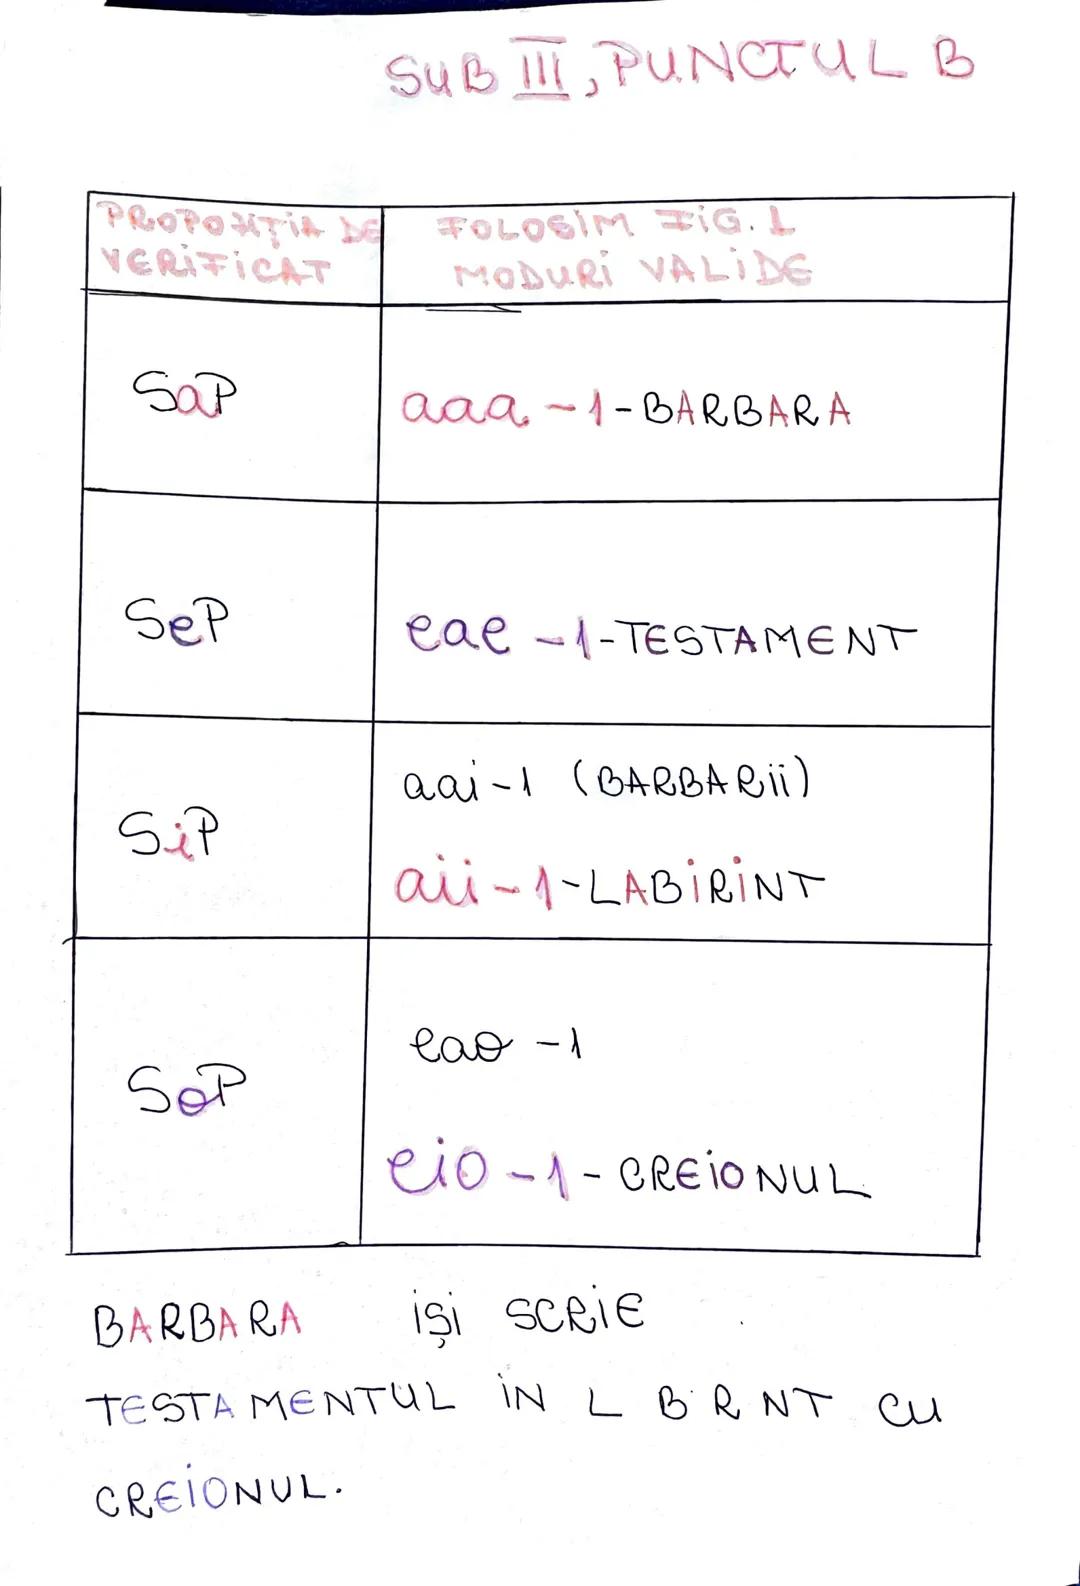 SUB III, PUNCTUL B
PROPOZIȚIA DE VERIFICAT
FOLOSIM FIG. 1 MODURI VALIDE
SaP
aaa -1-BARBARA
SeP
eae -1-TESTAMENT
SiP
aai-1 (BARBARii)
aii-1-LABIRINT
SoP
eao -1
eio-1- CREIONUL
BARBARA IȘI SCRIE
TESTAMENTUL IN L B R NT CU
CREIONUL.